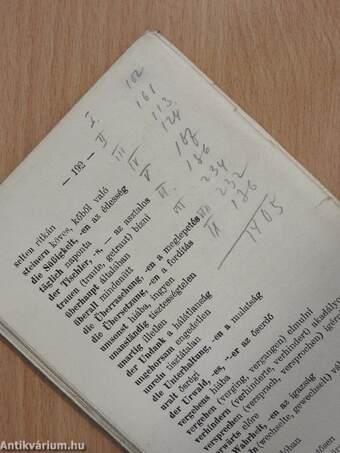 I. 102
II 161
III 113
IV 124
V 187
VI. 186
VII 234
VIII 232
IX 126
1405
— 192 —
selten ritkán
steinern köves, kőből való
die Süßigkeit, -en az édesség
täglich naponta
der Tischler, -s, — az asztalos
trauen (traute, getraut) bízni
überhaupt általában
überall mindenütt
die Überraschung, -en a meglepetés
die Übersetzung, -en a fordítás
umsonst hiába, ingyen
unanständig tisztességtelen
unartig illetlen
der Undank a hálátlanság
ungehorsam engedetlen
unrein tisztátalan
die Unterhaltung, -en a mulatság
uralt ősrégi
der Urwald, -es, -er az őserdő
vergebens hiába
vergehen (verging, vergangen) elmúlni
verhindern (verhinderte, verhindert)
versprechen (versprach, versprochen)
vorwärts előre
Wahrheit, -en az igazság
(wechselte, gewechselt)
Antikvárium.hu